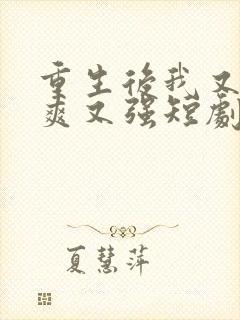 重生後我又
爽又强短劇
夏慧萍